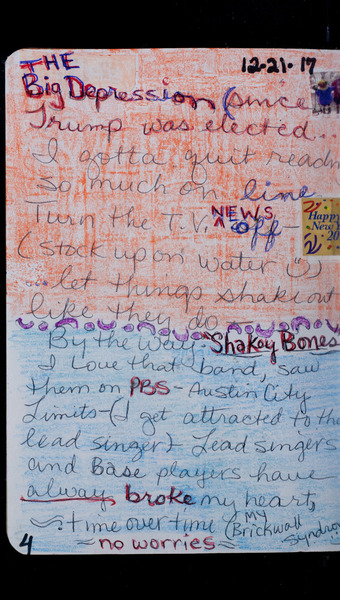 THE 12·21·17
Big Depression (since
Trump was elected...
I gotta quit readin
so much on line
Turn the T.V. NEWS off—
(stock up on water ☺)
... let things shake out
like they do
By the way: "Shakey Bones
I love that band, saw
them on PBS - Austin City
Limits - (I get attracted to the
lead singer). Lead singers
and Base players have
always broke my heart,
time over time (MY Brickwall
Syndro
~ no worries ~
4
Happy
New Y
20